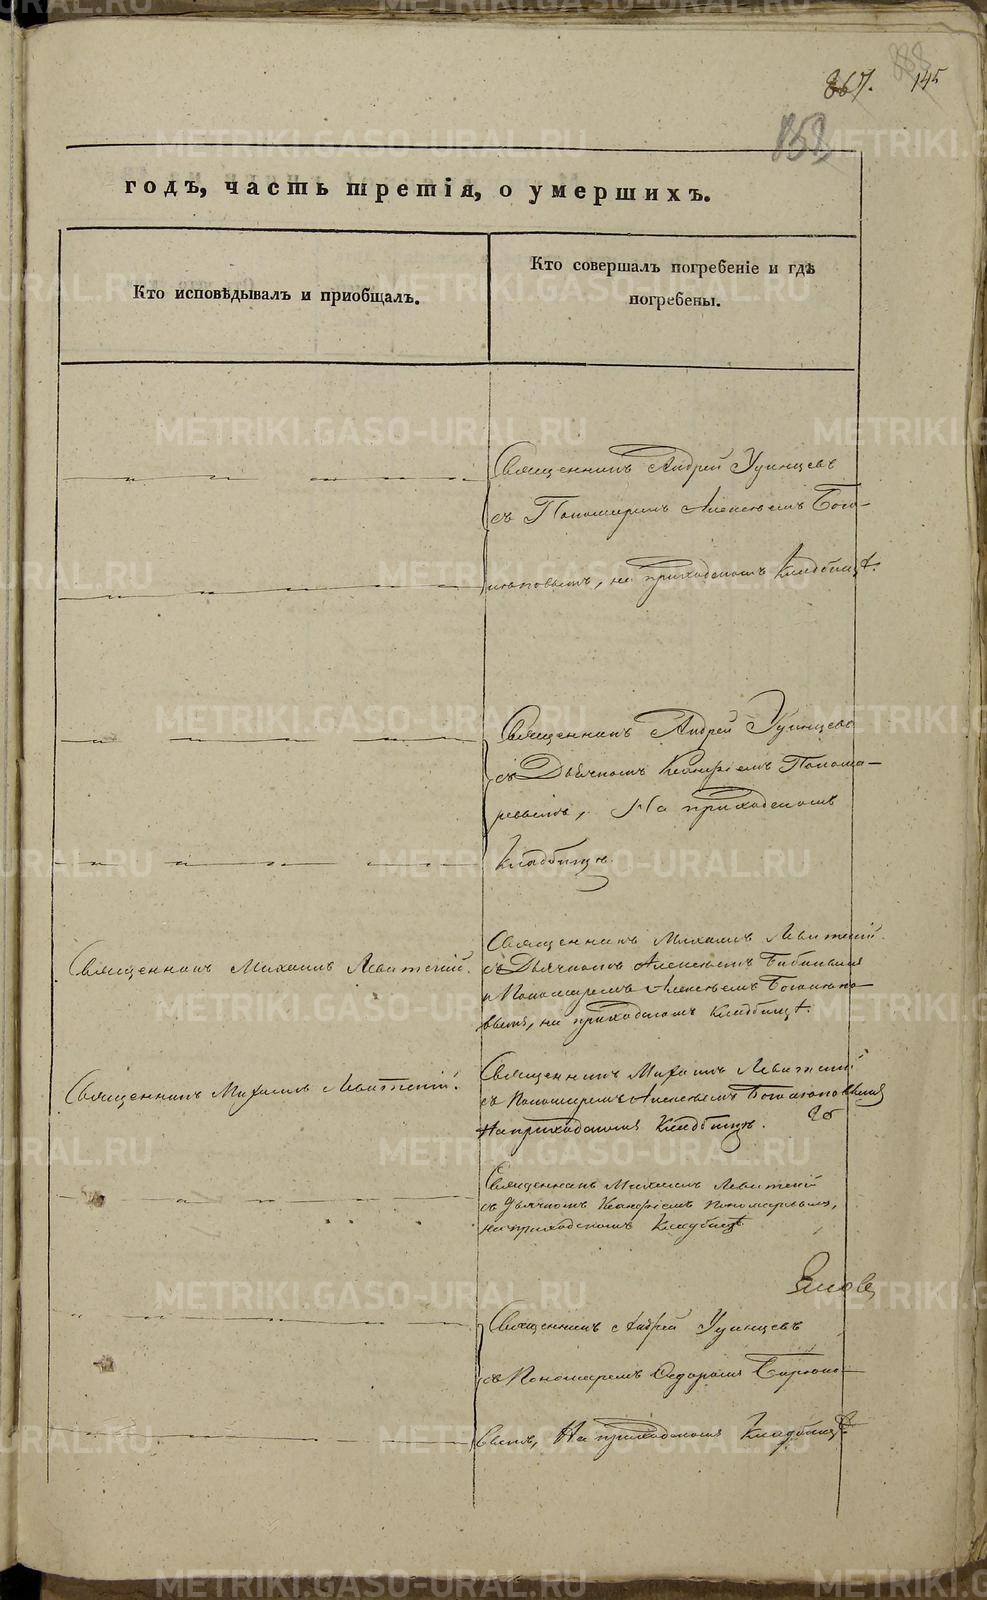 867. 145
годъ, часть третія, о умершихъ.
Кто исповѣдывалъ и приобщалъ.
Кто совершалъ погребеніе и гдѣ
погребены.
Священникъ Андрей Удинцевъ
съ Пономаремъ Алексѣемъ Бого-
на приходскомъ кладбищѣ.
Священникъ Андрей Удинцевъ
съ Дьячкомъ Понома-
ревымъ, На приходскомъ
кладбищѣ.
Священникъ Михаилъ Левитскій.
Священникъ Михаилъ Левитскій
съ Дьячкомъ Алексѣемъ
и Пономаремъ Алексѣемъ
вымъ, на приходскомъ кладбищѣ.
Священникъ Михаилъ Левитскій.
Священникъ Михаилъ Левитскій
съ Пономаремъ Алексѣемъ
На приходскомъ Кладбищѣ.
Священникъ Михаилъ Левитскій
съ Дьячкомъ Пономаревымъ,
на приходскомъ Кладбищѣ
Священникъ Андрей Удинцевъ
съ Пономаремъ Федоромъ
вымъ, На приходскомъ Кладбищѣ.
METRIKI.GASO-URAL.RU